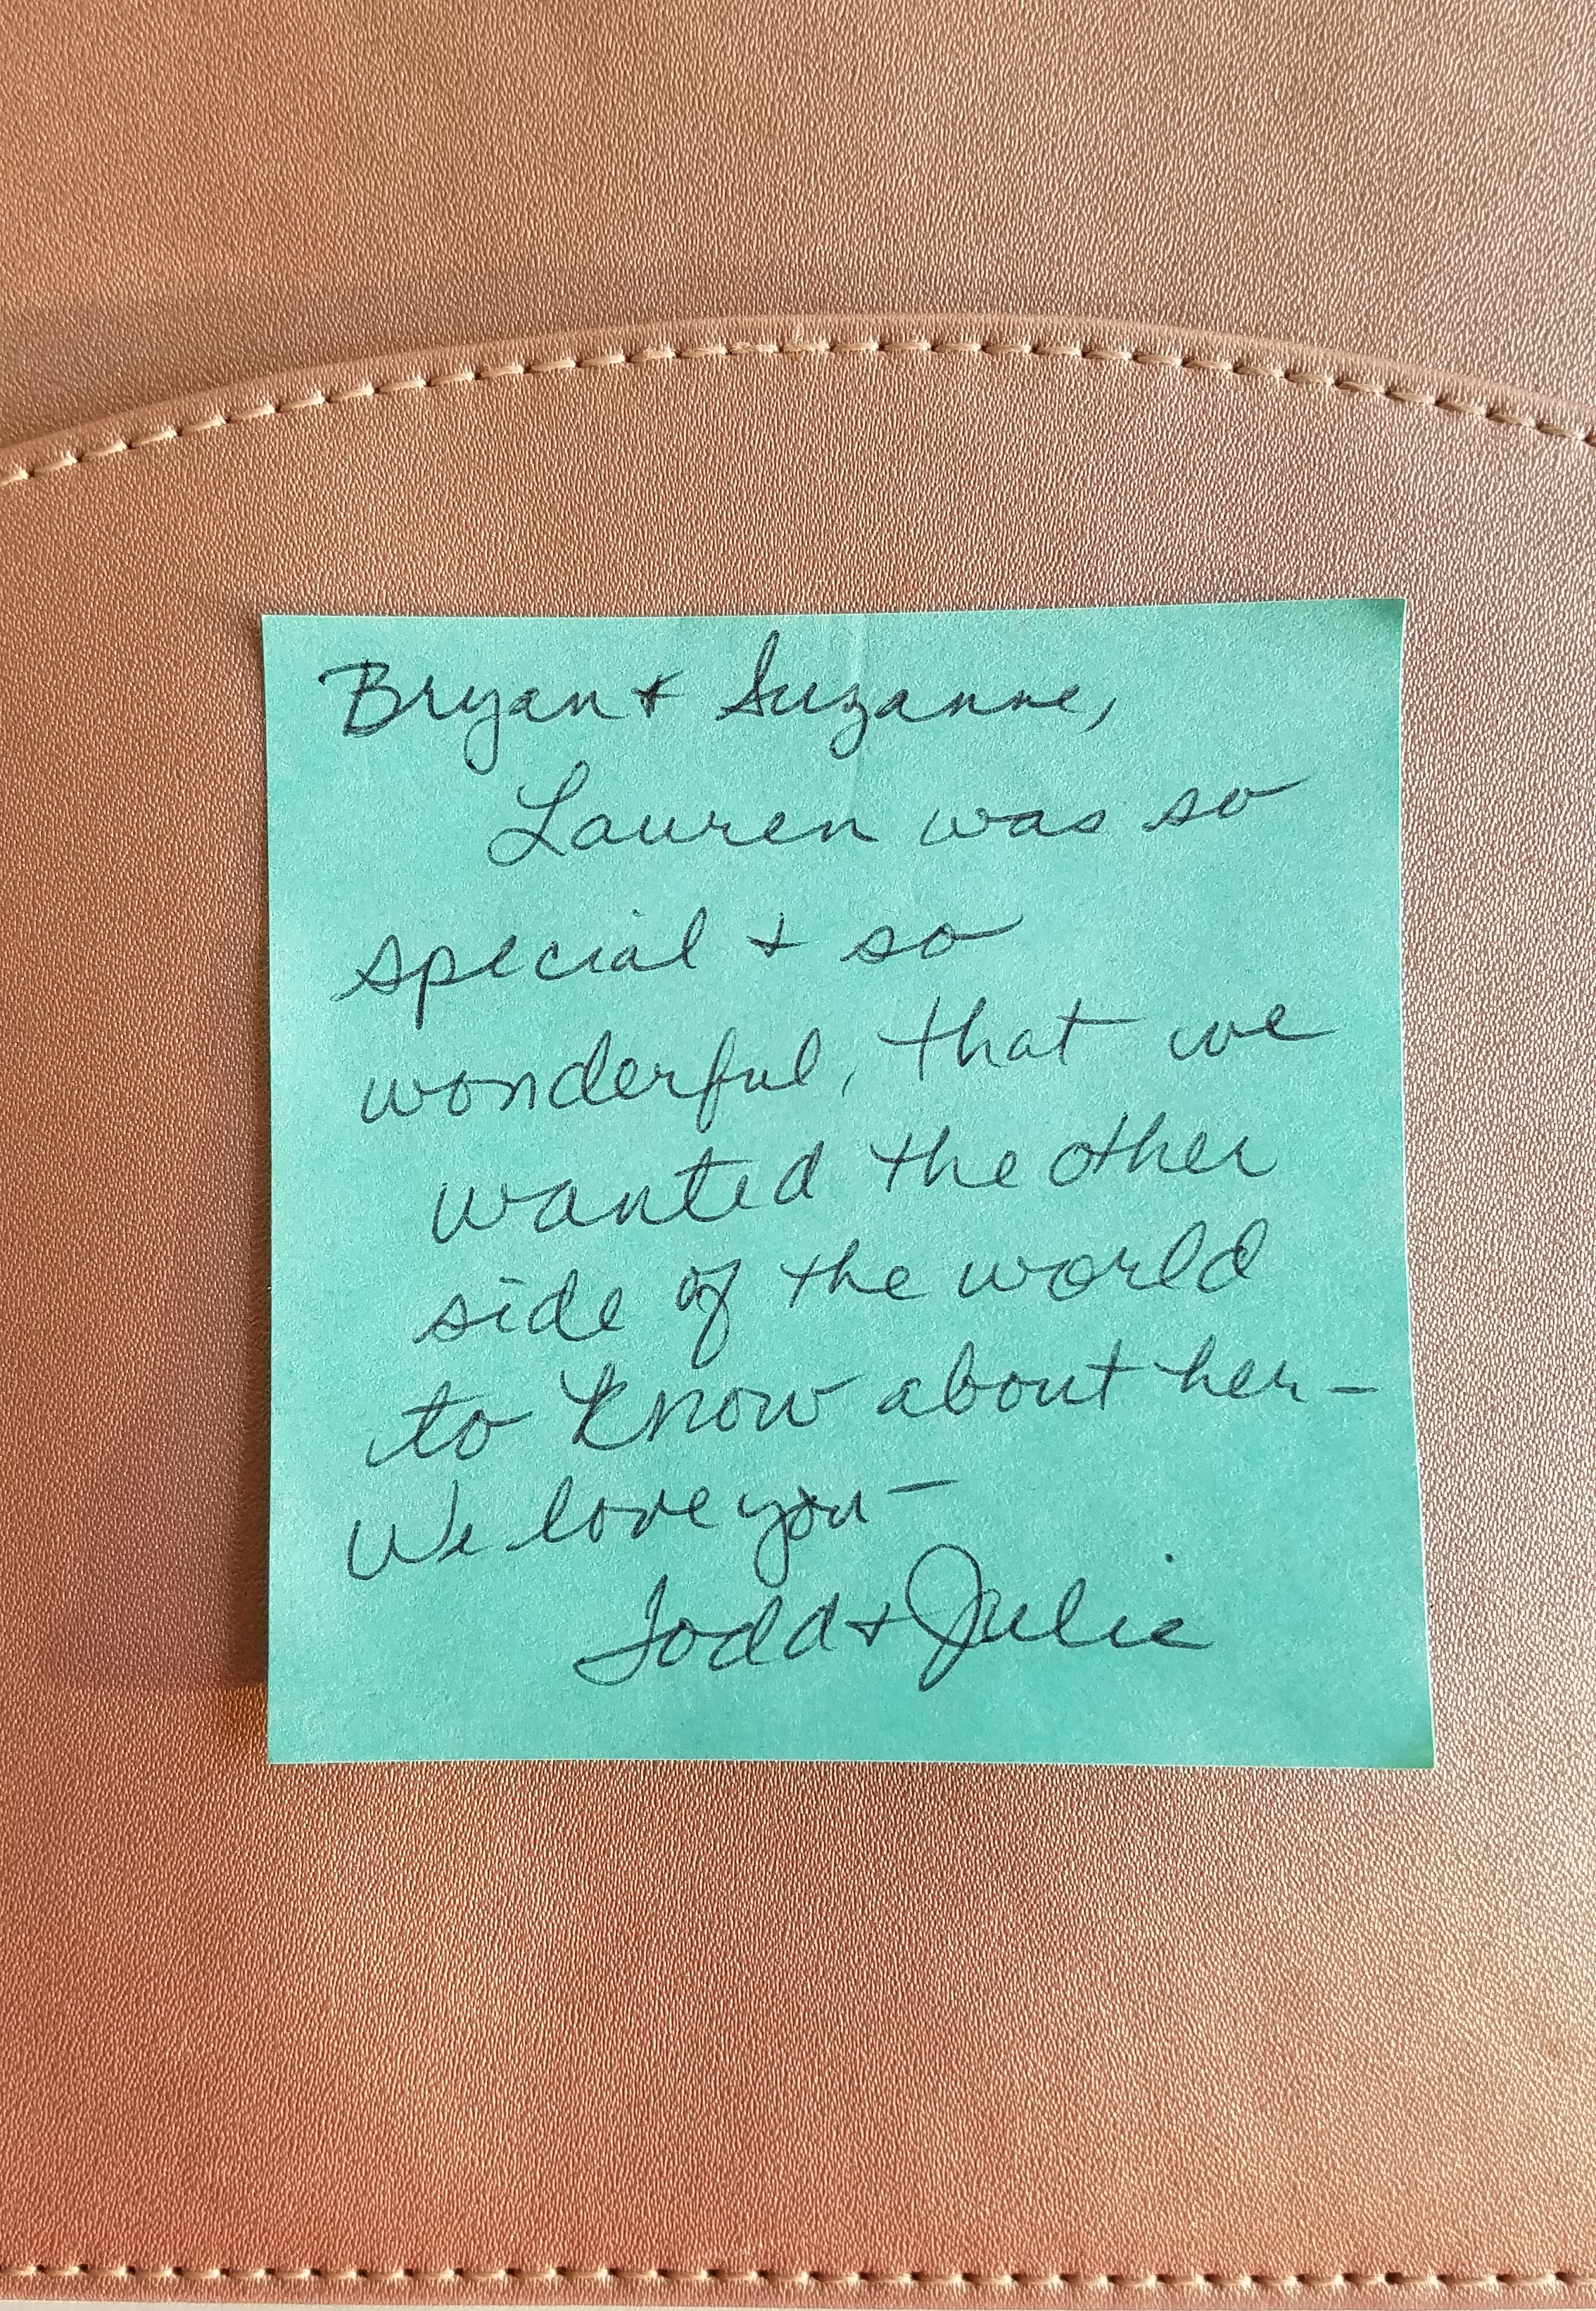 Bryan + Suzanne,
Lauren was so
special + so
wonderful, that we
wanted the other
side of the world
to know about her-
We love you-
Todd + Julie